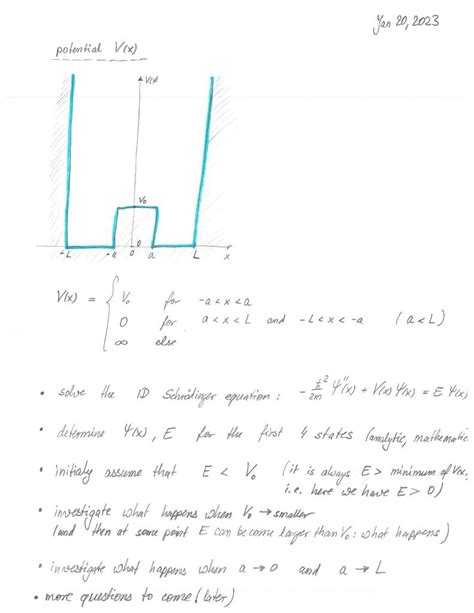 Jan 20, 2023
potential V(x)
V(x)
V₀
0
-L -a 0 a L x
V(x) = { V₀ for -a<x<a
0 for a<x<L and -L<x<-a (a<L)
∞ else
• solve the 1D Schrödinger equation: -ħ²/2m Ψ''(x) + V(x) Ψ(x) = E Ψ(x)
• determine Ψ(x), E for the first 4 states (analytic, mathematic
• initialy assume that E < V₀ (it is always E > minimum of V(x),
i.e. here we have E > 0)
• investigate what happens when V₀ → smaller
(and then at some point E can become larger than V₀: what happens)
• investigate what happens when a → 0 and a → L
• more questions to come (later)